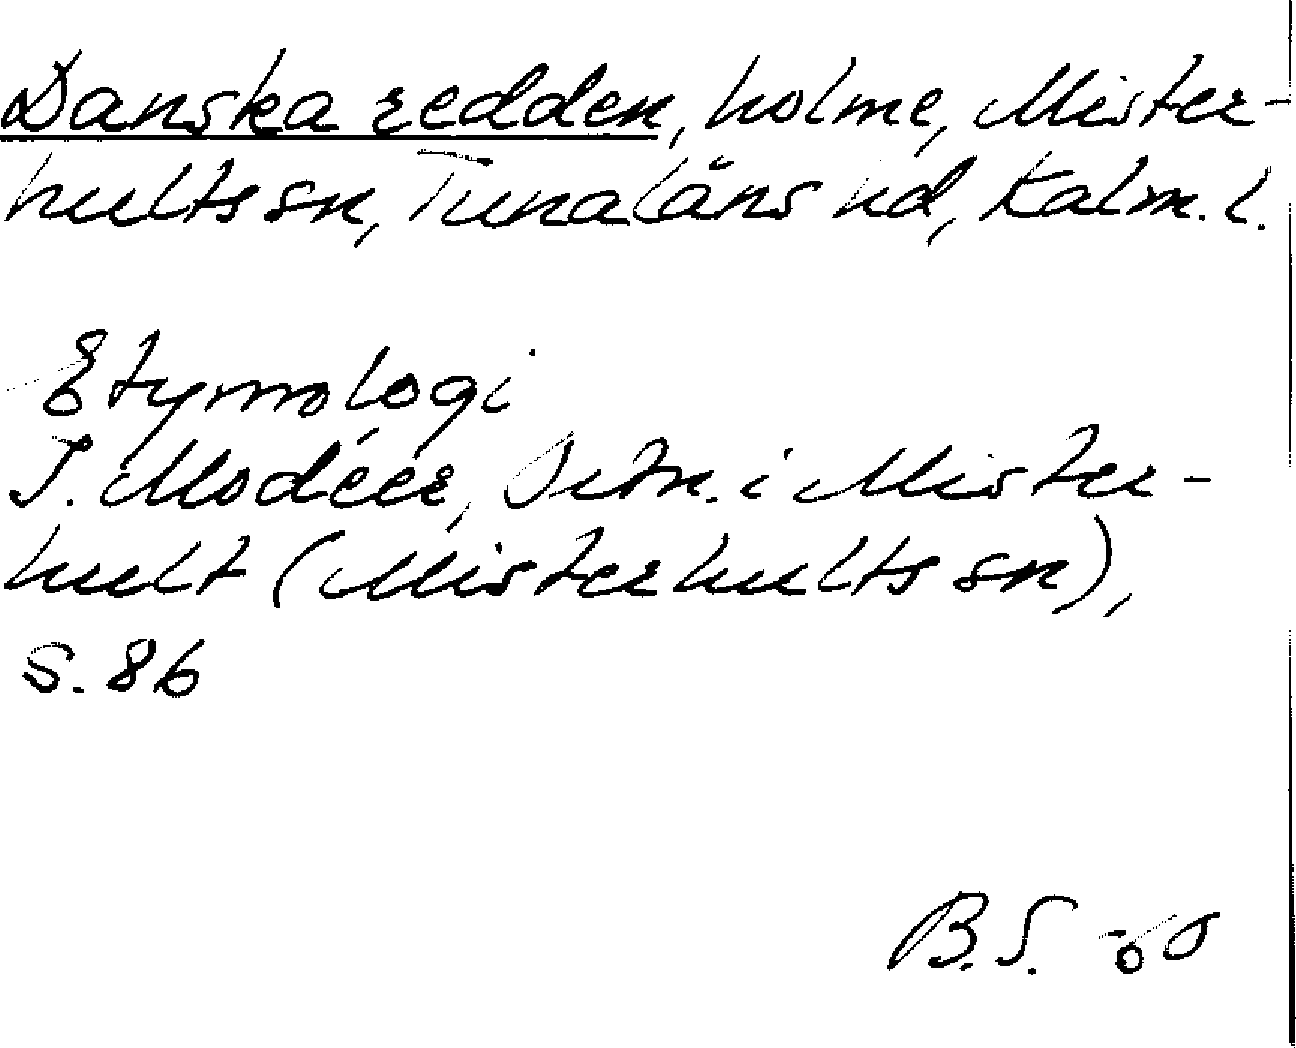 Danska redden, holme, Mister-
hults sn, Tunaläns hd, Kalm. l.
Etymologi
I. Modéer, Ortn. i Mister-
hult (Misterhults sn),
s. 86
B.S. -60